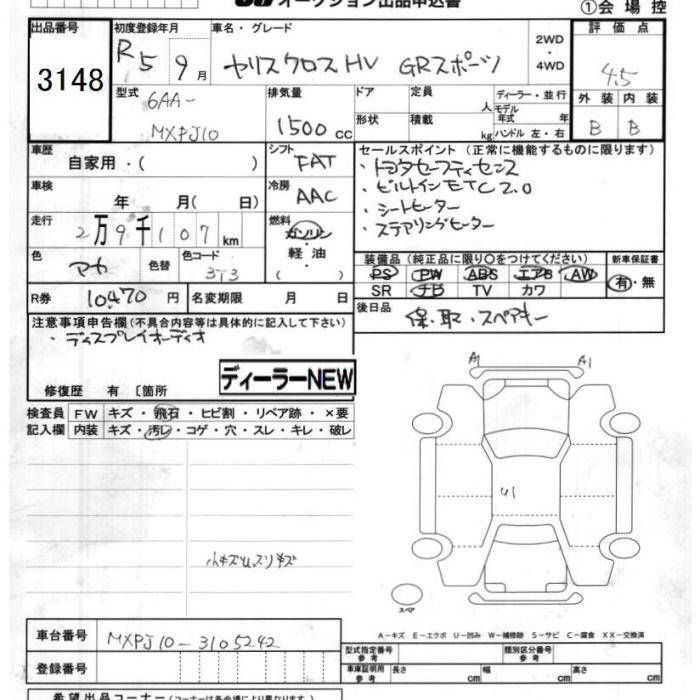 オークション出品申込書
①会場控
出品番号 初度登録年月 車名・グレード 評価点
3148 R5 9月 ヤリスクロスHV GRスポーツ 2WD・4WD 4.5
型式 排気量 ドア 定員 人 ディーラー・並行 外装 内装
6AA-
MXPJ10 1500cc 形状 積載 kg モデル年式 年 ハンドル 左・右 B B
車歴 自家用・( ) シフト FAT セールスポイント (正常に機能するものに限ります)
・トヨタセーフティセンス
車検 年 月( 日) 冷房 AAC ・ビルトインETC2.0
・シートヒーター
走行 2万9千107km 燃料 ガソリン・軽油・( ) ・ステアリングヒーター
色 アカ 色替 色コード 3T3 装備品 (純正品に限り○をつけてください) 新車保証書
PS PW ABS エアB AW 有・無
R券 10,470円 名変期限 月 日 SR ナビ TV カワ
後日品 保・取・スペアキー
注意事項申告欄(不具合内容等は具体的に記入して下さい)
・ディスプレイオーディオ
修復歴 有 〔箇所 ディーラーNEW
検査員 FW キズ・飛石・ヒビ割・リペア跡・×要
記入欄 内装 キズ・汚レ・コゲ・穴・スレ・キレ・破レ
A1 A1
U1
小キズ
スペア
A−キズ E−エクボ U−凹み W−補修跡 S−サビ C−腐食 XX−交換済
車台番号 MXPJ10-3105242
型式指定番号 参考 類別区分番号 参考
登録番号 車庫証明用 参考 長さ cm 幅 cm 高さ cm
希望出品コーナー (コーナーは各会場により異なります。)